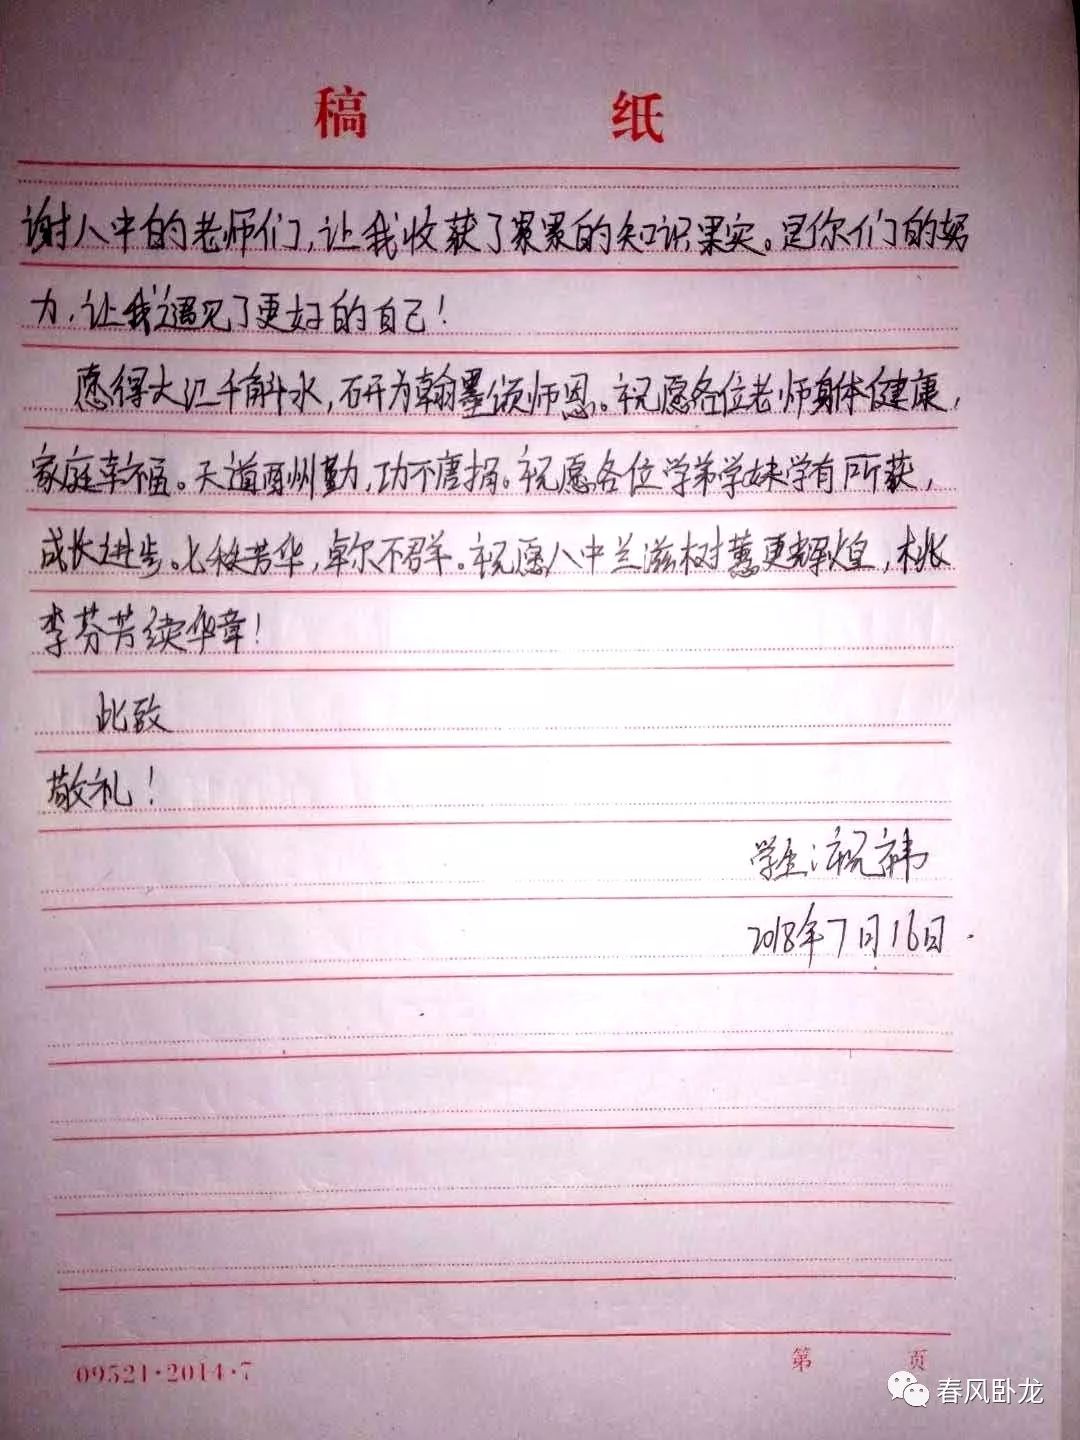 稿 纸
谢八中的老师们,让我收获了累累的知识果实。是你们的努
力,让我遇见了更好的自己!
愿得大江千斛水,研为翰墨颂师恩。祝愿各位老师身体健康,
家庭幸福。天道酬勤,功不唐捐。祝愿各位学弟学妹学有所获,
成长进步。七秩芳华,卓尔不群。祝愿八中兰滋树蕙更辉煌,桃
李芬芳续华章!
此致
敬礼!
学生:祝祎
2018年7月16日.
09521·2014·7
第 页
春风卧龙